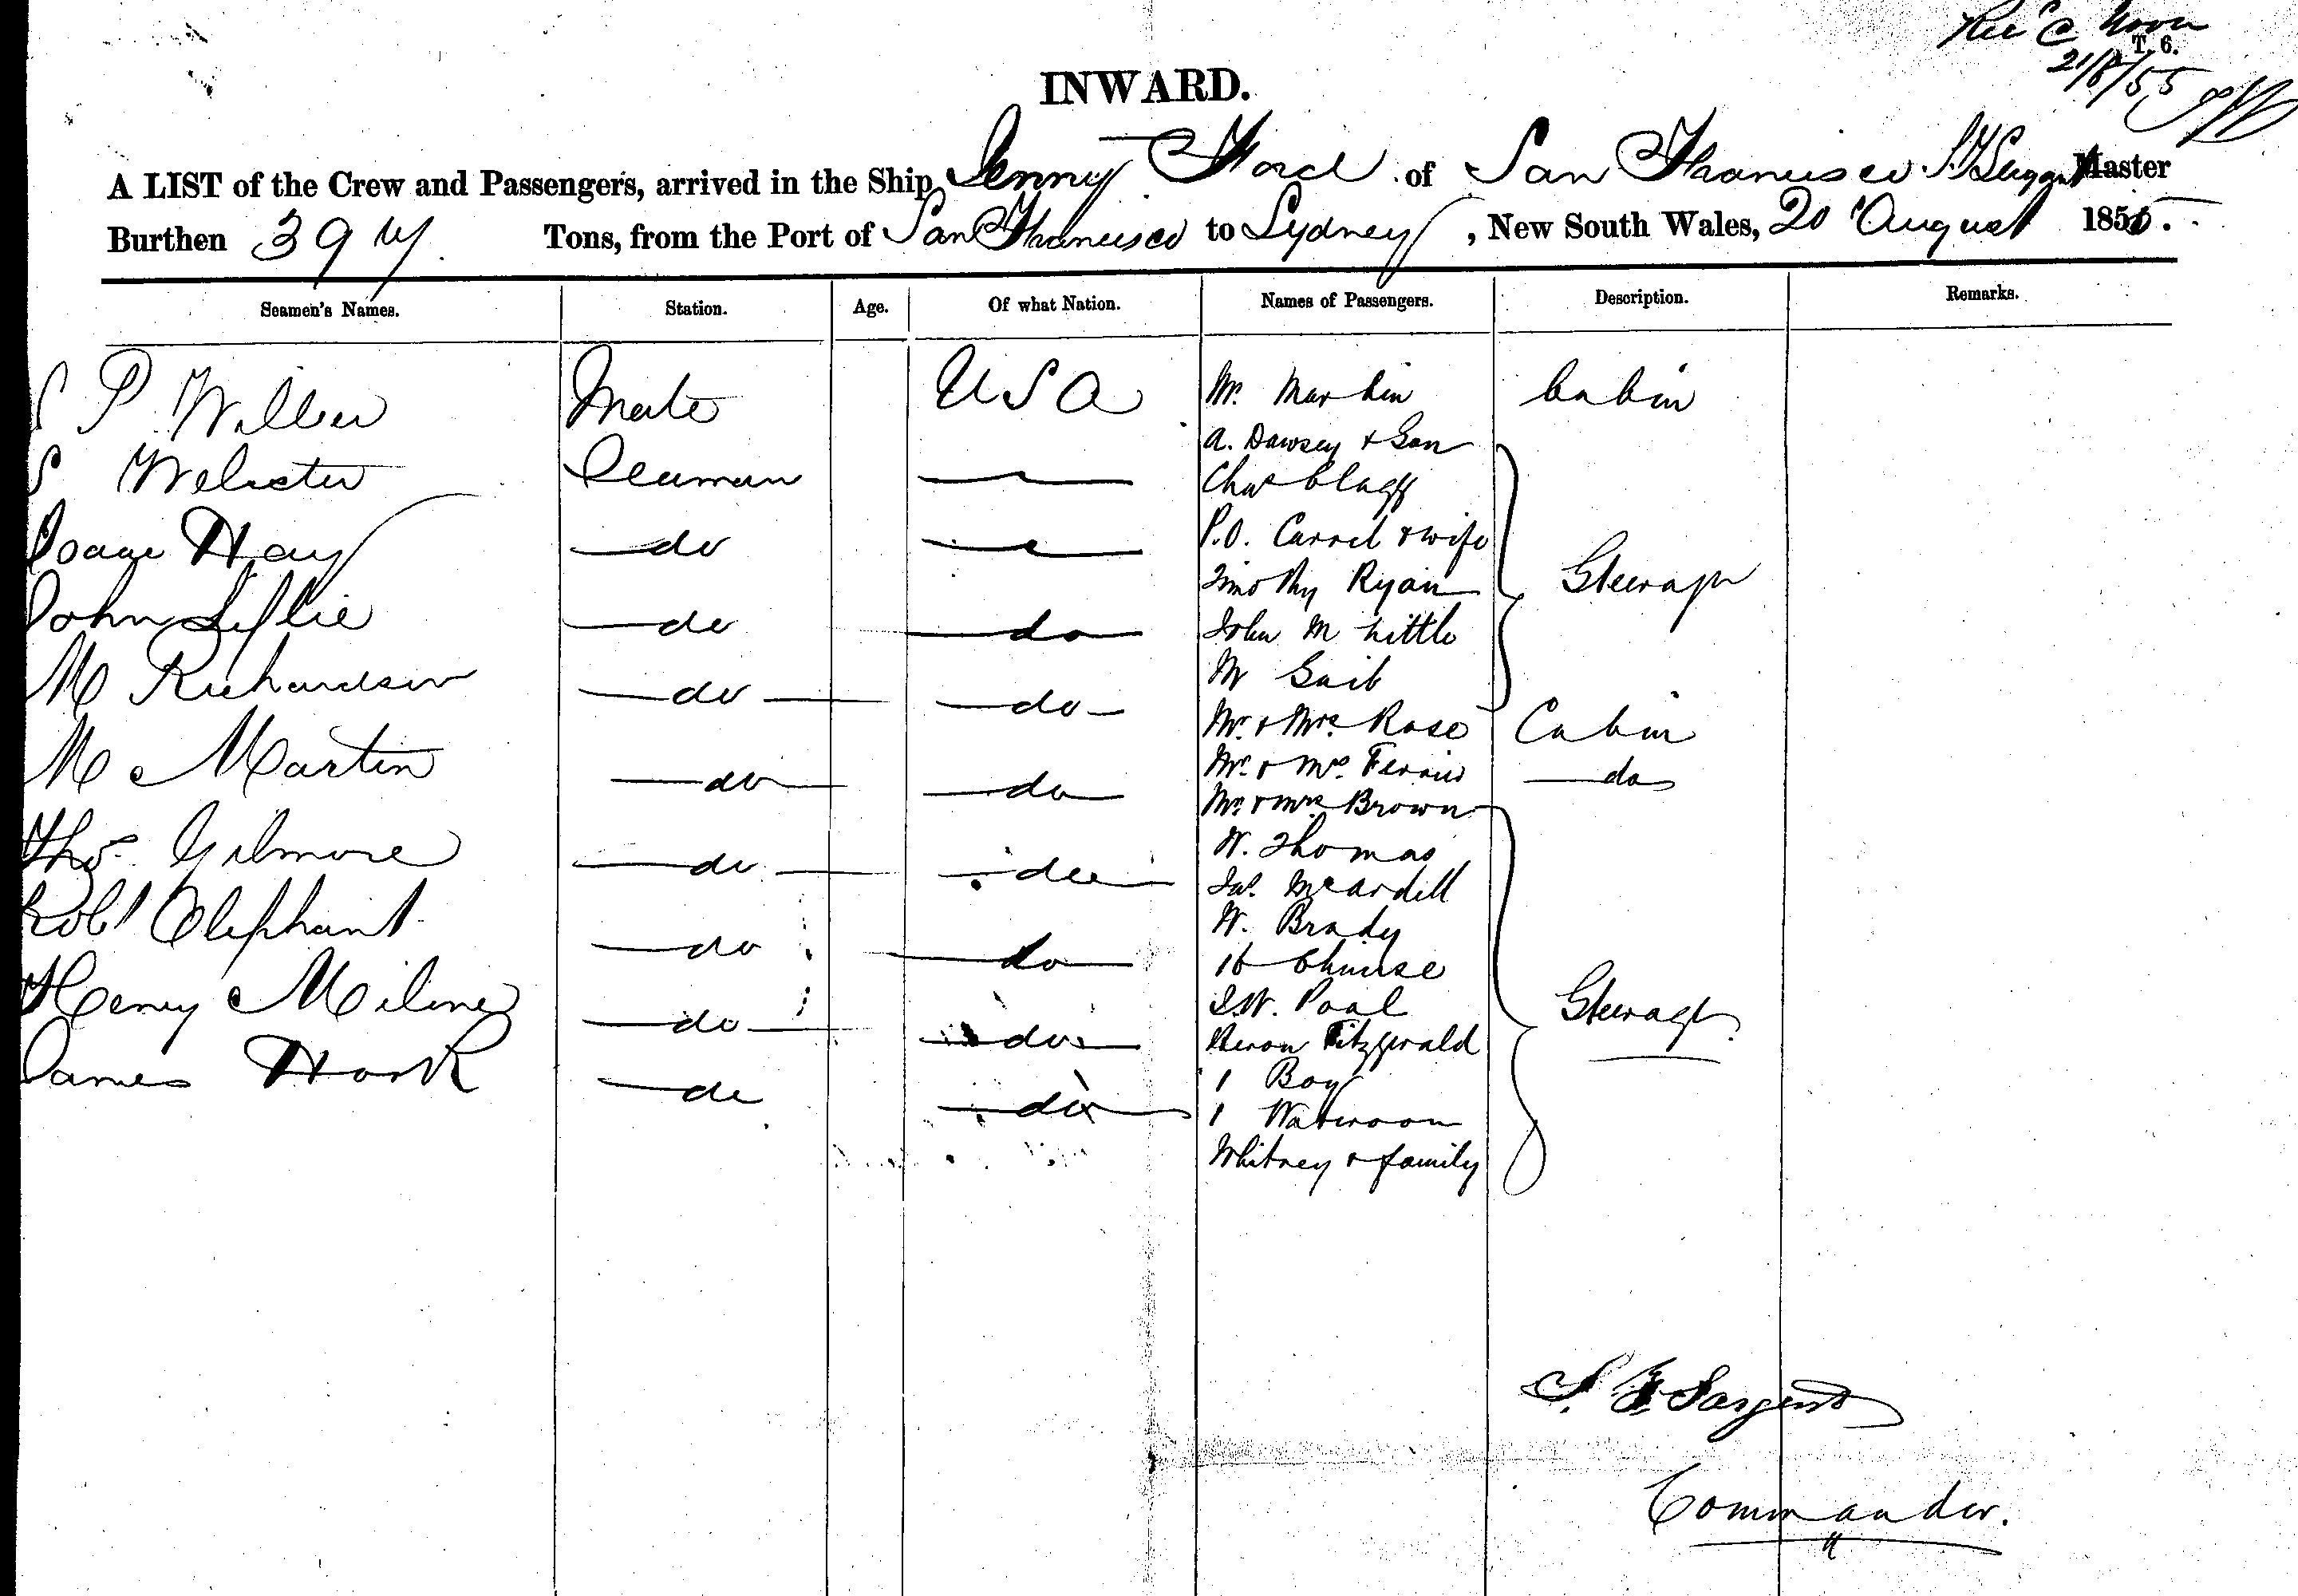 Rec'd Noon
T. 6.
21/8/55
INWARD.
A LIST of the Crew and Passengers, arrived in the Ship Jenny Ford of San Francisco S. F Sargent Master
Burthen 397 Tons, from the Port of San Francisco to Sydney, New South Wales, 20 August 1855.
Seamen's Names. Station. Age. Of what Nation. Names of Passengers. Description. Remarks.
S P Wilber Mate USA Mr. Martin Cabin
A. Dawsey & Son
S Webster Seaman Chas Clagg
Isaac Hay do P.O. Carrol & wife
Timothy Ryan Steerage
John Leslie do do John M Little
M Gail
M Richardson do do Mr. & Mrs. Rose Cabin
M Martin do do Mr. & Mrs. Ferris do
Mr. & Mrs Brown
Thos. Gilmore do do W. Thomas
Jas. McArdill
Robt Olephant do do W. Brady
16 Chinese
Henry Milne do do J.W. Poal Steerage
Fitzgerald
James Hook do do 1 Boy
1
Whitney & family
S. F Sargent
Commander.